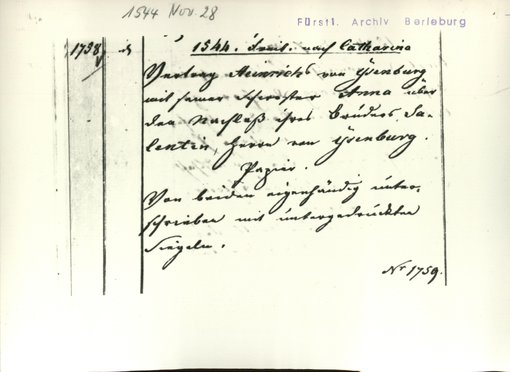 1544 Nov. 28
Fürstl. Archiv Berleburg
1738
1544. Freit. nach Catharina
Vertrag Heinrichs von Ysenburg
mit seiner Schwester Anna über
den Nachlaß ihres Bruders Sa-
lentin, Herrn von Ysenburg.
Papier.
Von beiden eigenhändig unter-
schrieben mit untergedruckten
Siegeln.
Nr 1759.